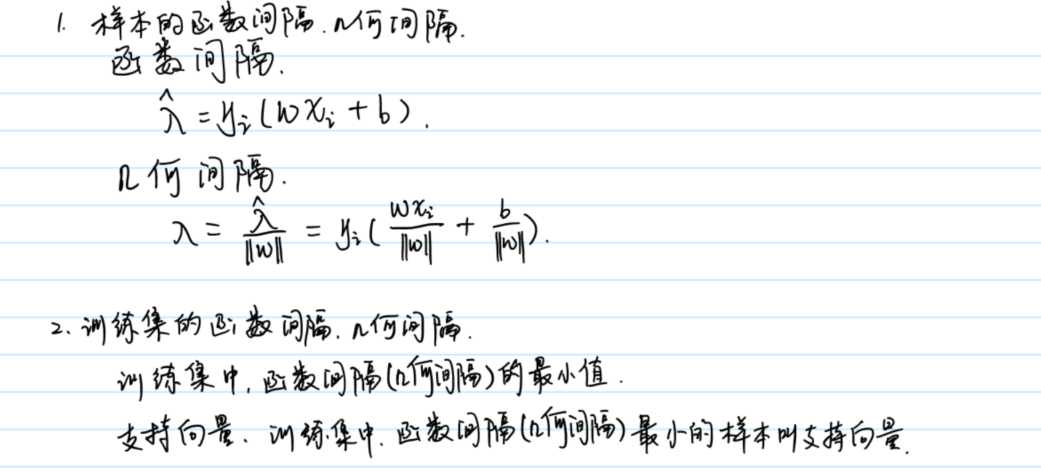 1. 样本的函数间隔.几何间隔.
函数间隔.
λ̂ = yᵢ(wxᵢ + b).
几何间隔.
λ = λ̂/‖w‖ = yᵢ(wxᵢ/‖w‖ + b/‖w‖).
2. 训练集的函数间隔.几何间隔.
训练集中,函数间隔(几何间隔)的最小值.
支持向量. 训练集中.函数间隔(几何间隔)最小的样本叫支持向量.